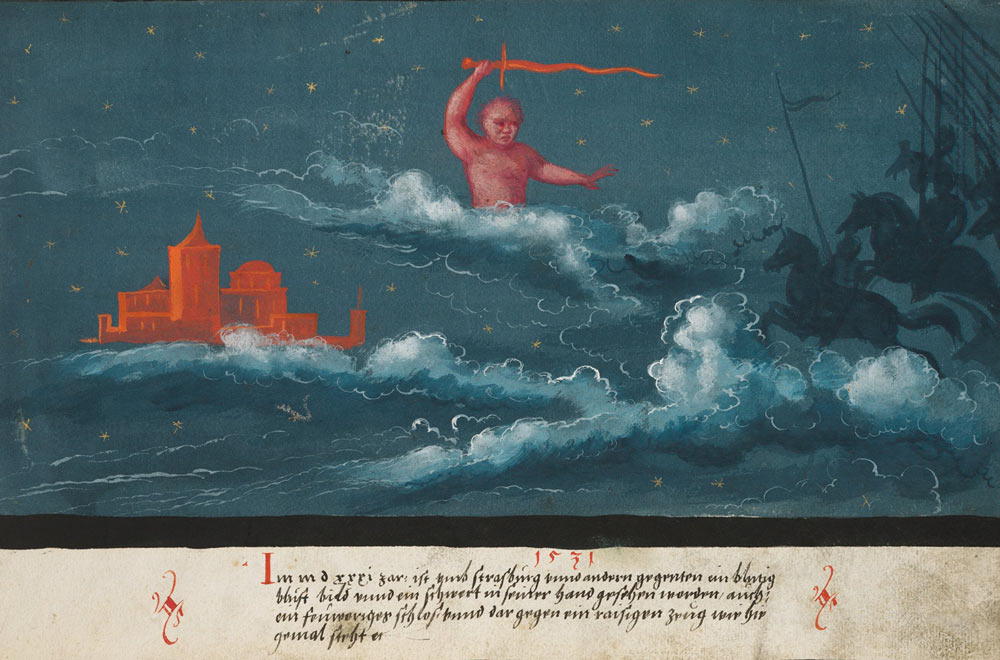 1531
Im m d xxxi Jar, ist umb strasburg unnd andern gegenten ein blutig
brust bild unnd ein schwert in seiner hand gesehen worden, auch
ein feuweriges schlos unnd dar gegen ein raisigen zeug wie hie
gemal steht